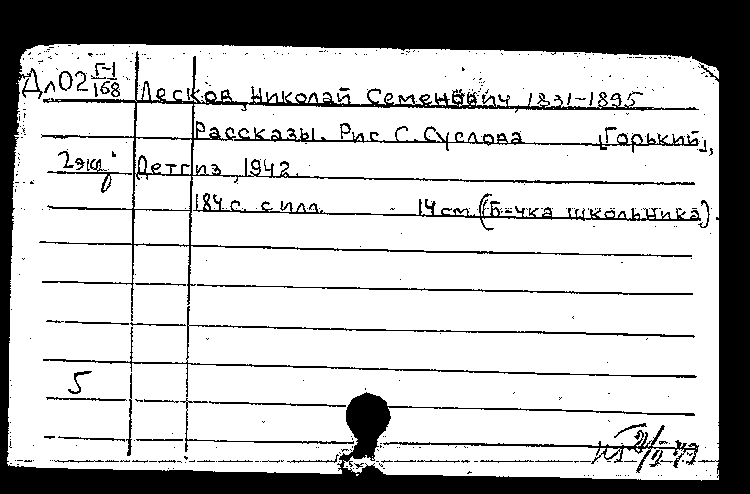 Дл02 Г-1/168 Лесков, Николай Семенович, 1831-1895
Рассказы. Рис С. Суслова [Горький],
2экз Детгиз, 1942.
184 с. с илл. 14 см (Б-чка школьника).
5